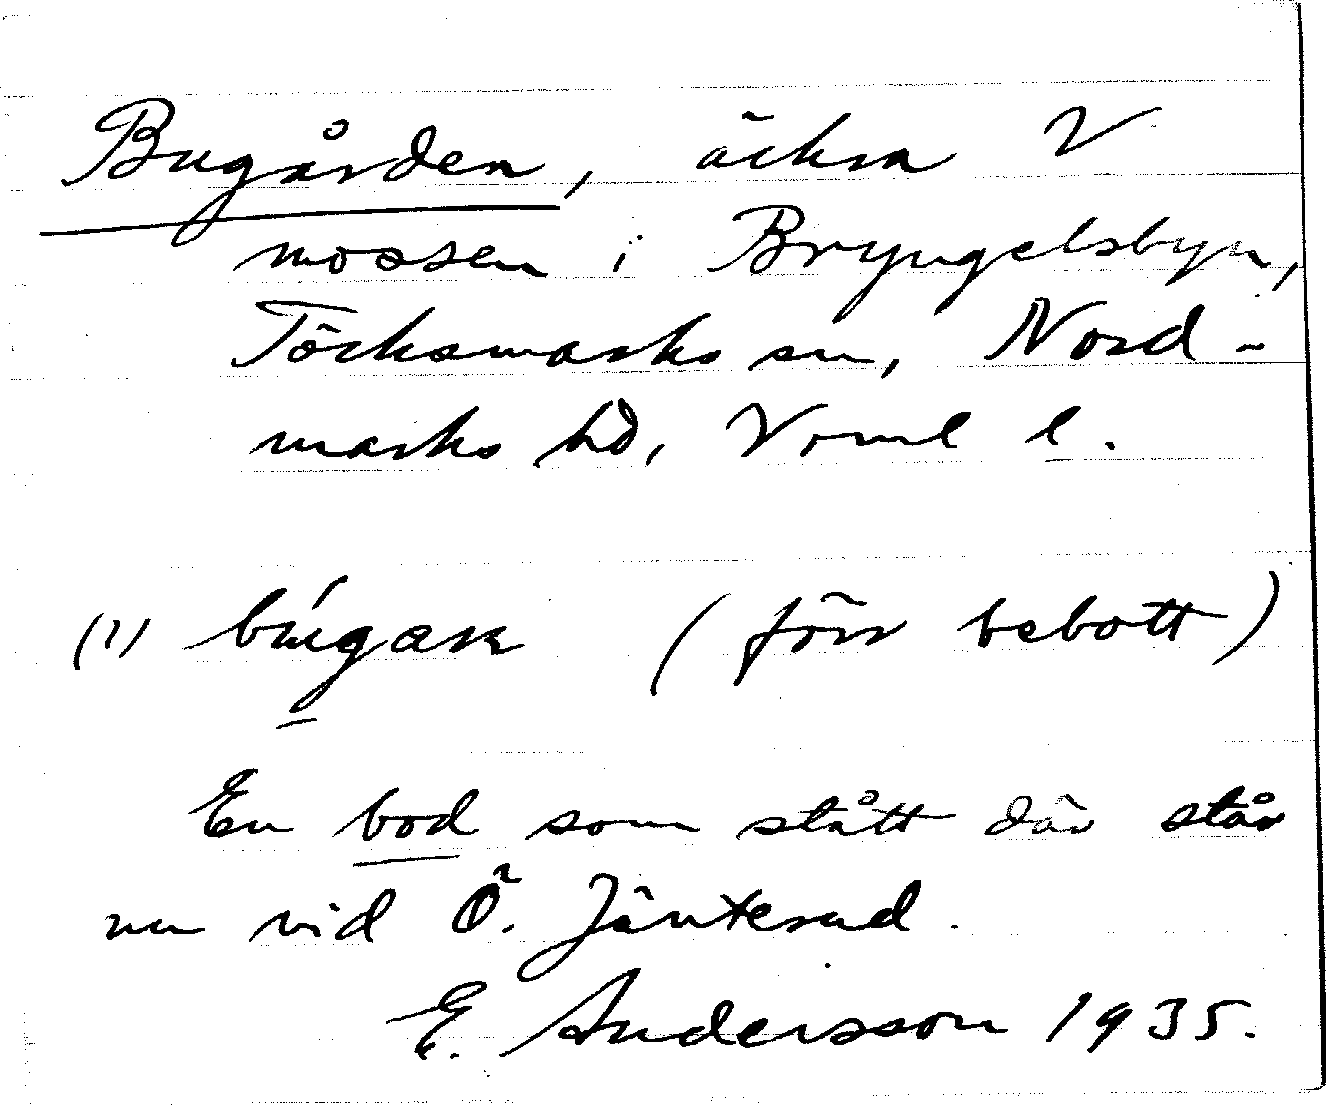 Bugården, åckra V
mossen i Bryngelsbyn,
Töcksmarks sn, Nord-
marks hd, Vorml l.
(1) búgaṟn (förr bebott)
En bod som stått där står
nu vid Ö. Jänterud.
E. Andersson 1935.